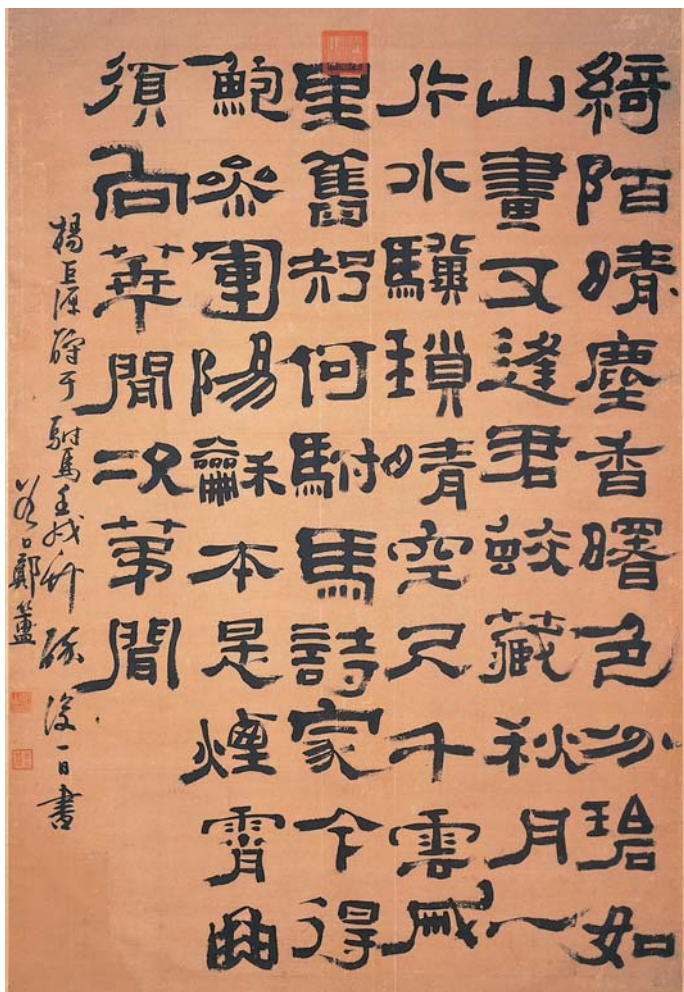 綺陌晴塵香曙色分碧如
山畫又逢君蛟藏秋月一
片水驥瑣晴空尺千雲戚
里舊知何駙馬詩家今得
鮑參軍陽龢本是煙霄曲
須向華閒次第聞
楊巨源酬于駙馬壬戌竹醉後一日書
谷口鄭簠